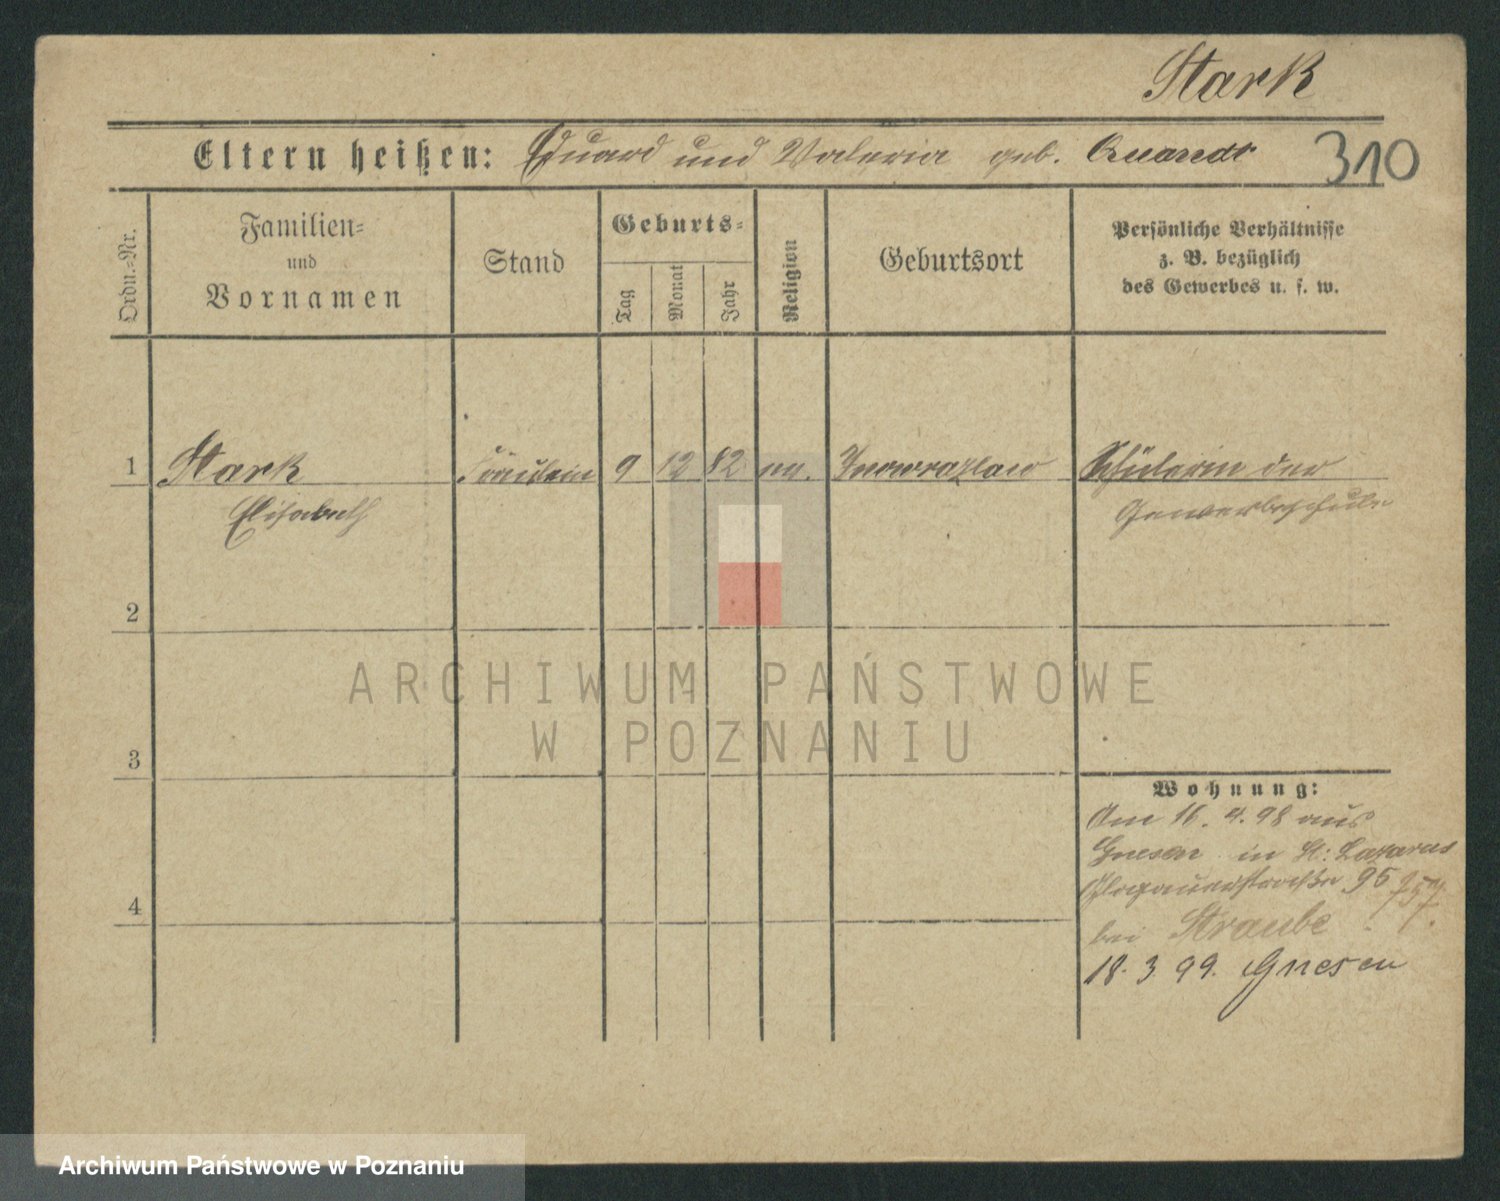 Stark
Eltern heißen: Eduard und Valeria geb. Quandt
310
Ordn.-Nr.
Familien-
und
Vornamen
Stand
Geburts-
Tag
Monat
Jahr
Religion
Geburtsort
Persönliche Verhältnisse
z. B. bezüglich
des Gewerbes u. s. w.
1 Stark Fräulein 9 12 82 ev. Inowrazlaw Schülerin der
Elisabeth Gewerbeschule
2
ARCHIWUM PAŃSTWOWE
W POZNANIU
3
Wohnung:
Am 16. 4. 98 aus
Gnesen in St. Lazarus
Glogauerstraße 95
4
bei Straube
18. 3 99. Gnesen
Archiwum Państwowe w Poznaniu